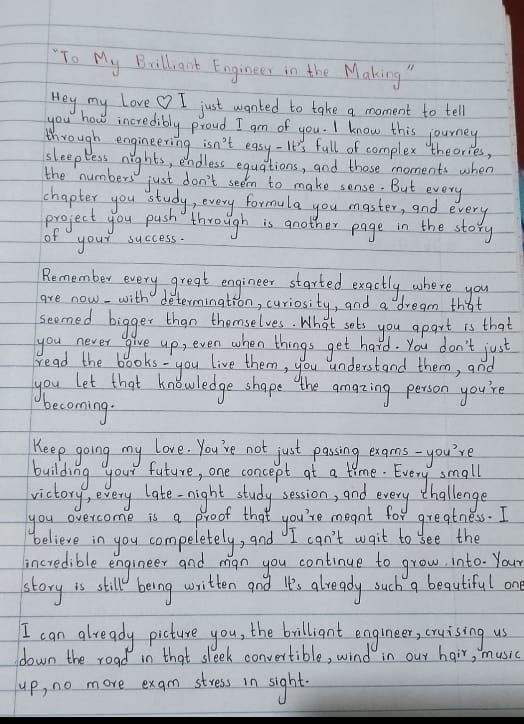 "To My Brilliant Engineer in the Making"
Hey my Love ♡ I just wanted to take a moment to tell
you how incredibly proud I am of you. I know this journey
through engineering isn't easy - It's full of complex theories,
sleepless nights, endless equations, and those moments when
the numbers just don't seem to make sense. But every
chapter you study, every formula you master, and every
project you push through is another page in the story
of your success.
Remember every great engineer started exactly where you
are now - with determination, curiosity, and a dream that
seemed bigger than themselves. What sets you apart is that
you never give up, even when things get hard. You don't just
read the books - you live them, you understand them, and
you let that knowledge shape the amazing person you're
becoming.
Keep going my love. You're not just passing exams - you're
building your future, one concept at a time. Every small
victory, every late-night study session, and every challenge
you overcome is a proof that you're meant for greatness. I
believe in you compeletely, and I can't wait to see the
incredible engineer and man you continue to grow into. Your
story is still being written and It's already such a beautiful one
I can already picture you, the brilliant engineer, cruising us
down the road in that sleek convertible, wind in our hair, music
up, no more exam stress in sight.